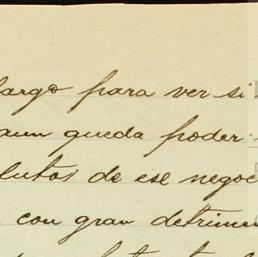 largo para ver si
aun queda poder
lutos de ese negoc
con gran detrimen